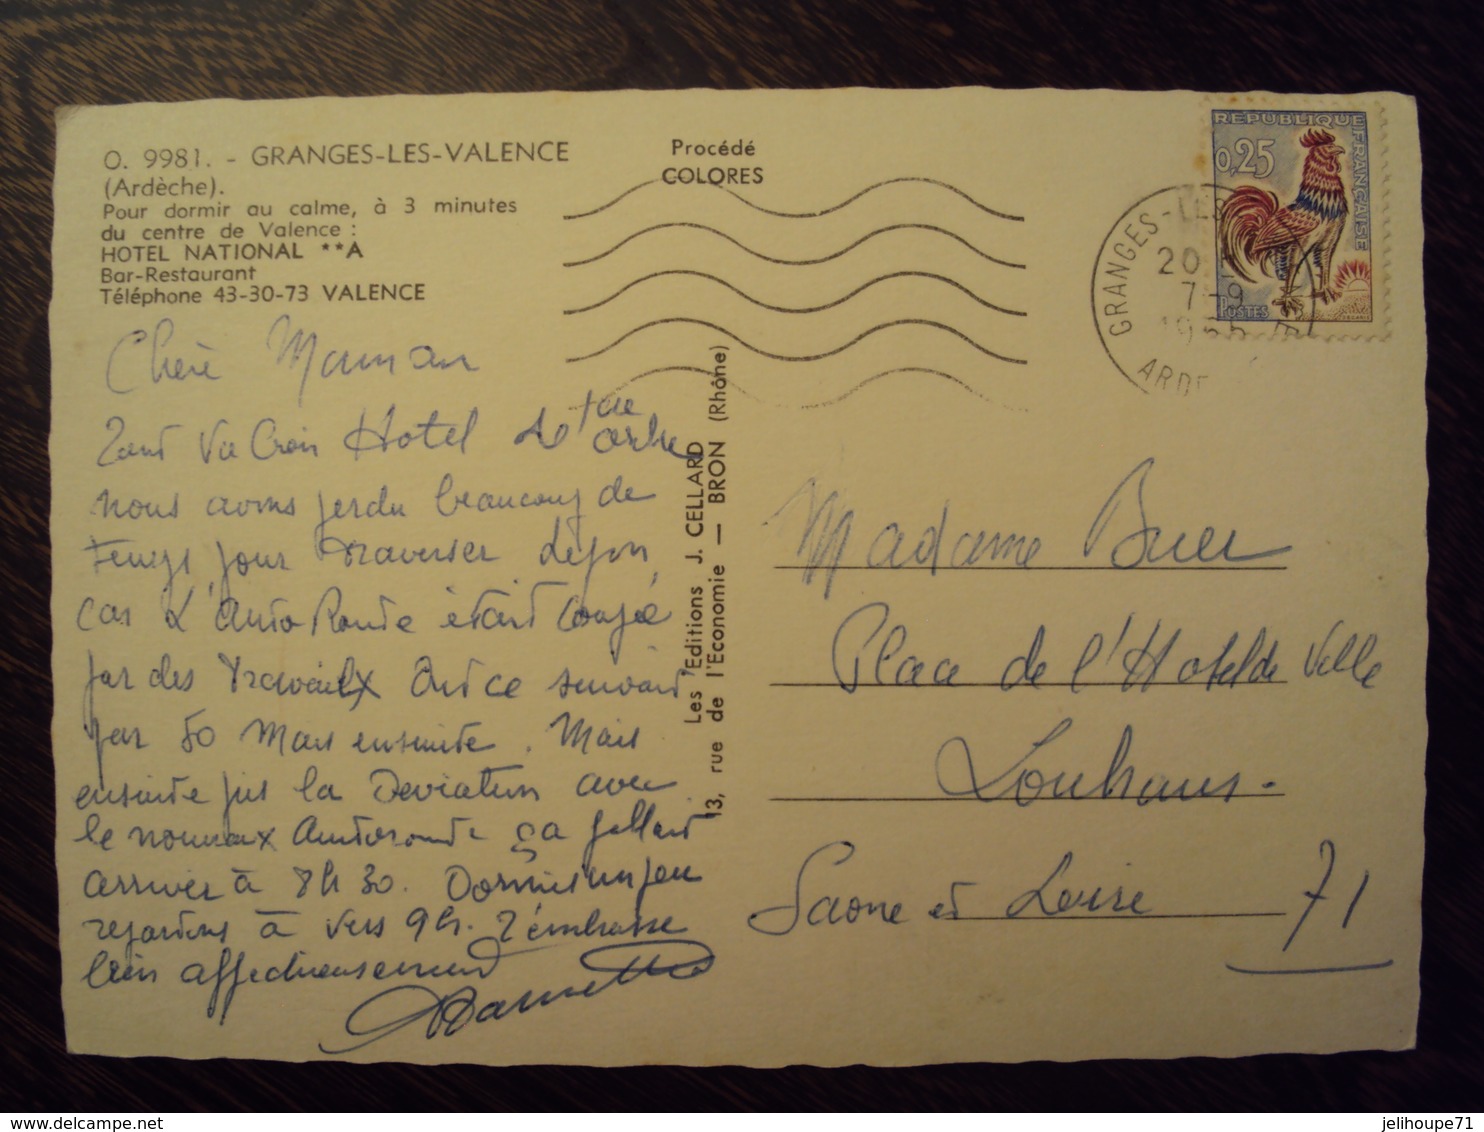 O. 9981. - GRANGES-LES-VALENCE
(Ardèche).
Pour dormir au calme, à 3 minutes
du centre de Valence :
HOTEL NATIONAL **A
Bar-Restaurant
Téléphone 43-30-73 VALENCE
Procédé
COLORES
REPUBLIQUE FRANÇAISE
0,25
POSTES
GRANGES-LES
20
7-9
ARDE
Les Editions J. CELLARD
13, rue de l'Economie — BRON (Rhône)
Chère Maman
Hotel
nous avons perdu beaucoup de
temps pour traverser
car L'AutoRoute était Coupée
par des Travaux
par 50 Mais ensuite. Mais
ensuite la Deviation avec
le nouveau Autoroute ça
arriver à 8h 30. un peu
repartons à vers 9h. T'embrasse
bien affectueusement
Madame Buer
Place de l'Hotel de Ville
Louhans -
Saone et Loire 71
jelihoupe71